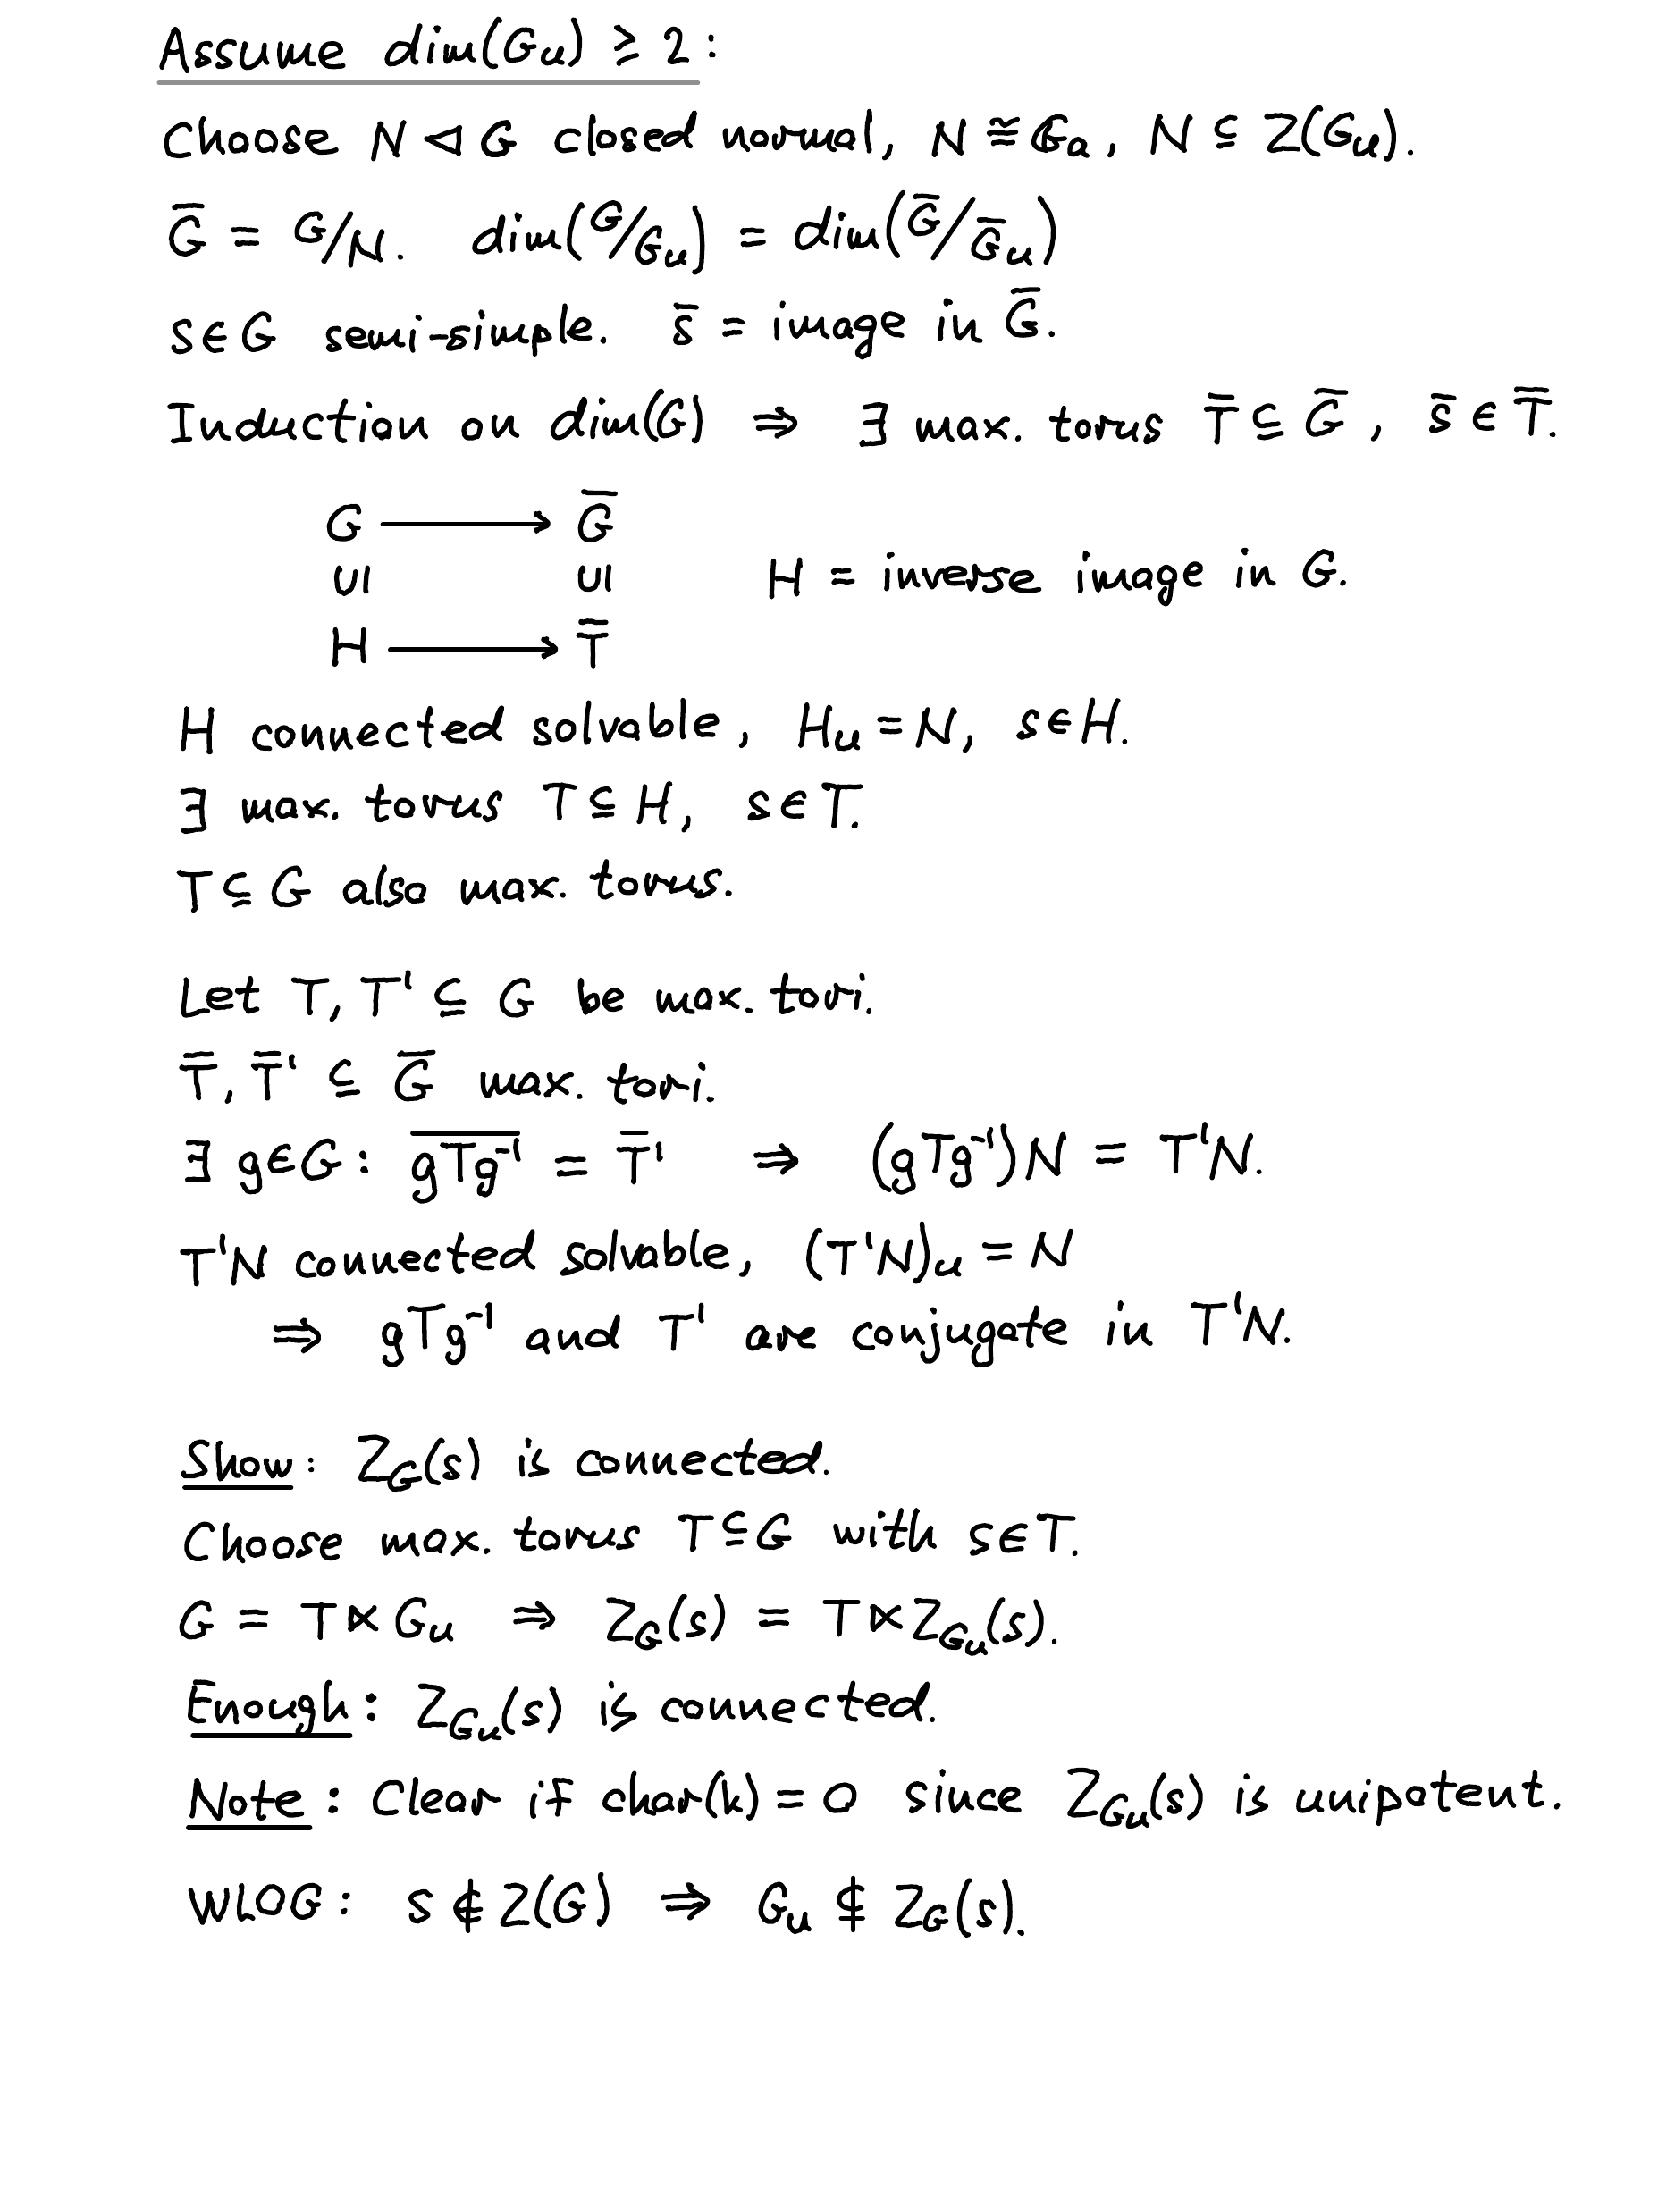 Assume dim(Gᵤ) ≥ 2:
Choose N ⊲ G closed normal, N ≅ Gₐ, N ⊆ Z(Gᵤ).
G̅ = G/N. dim(G/Gᵤ) = dim(G̅/G̅ᵤ)
s∈G semi-simple. s̅ = image in G̅.
Induction on dim(G) ⇒ ∃ max. torus T̅ ⊆ G̅, s̅ ∈ T̅.
G ⟶ G̅
∪| ∪| H = inverse image in G.
H ⟶ T̅
H connected solvable, Hᵤ = N, s∈H.
∃ max. torus T ⊆ H, s∈T.
T ⊆ G also max. torus.
Let T, T' ⊆ G be max. tori.
T̅, T̅' ⊆ G̅ max. tori.
∃ g∈G: \overline{gTg⁻¹} = T̅' ⇒ (gTg⁻¹)N = T'N.
T'N connected solvable, (T'N)ᵤ = N
⇒ gTg⁻¹ and T' are conjugate in T'N.
Show: Z_G(s) is connected.
Choose max. torus T ⊆ G with s∈T.
G = T ⋉ Gᵤ ⇒ Z_G(s) = T ⋉ Z_{Gᵤ}(s).
Enough: Z_{Gᵤ}(s) is connected.
Note: Clear if char(k) = 0 since Z_{Gᵤ}(s) is unipotent.
WLOG: s ∉ Z(G) ⇒ Gᵤ ⊈ Z_G(s).